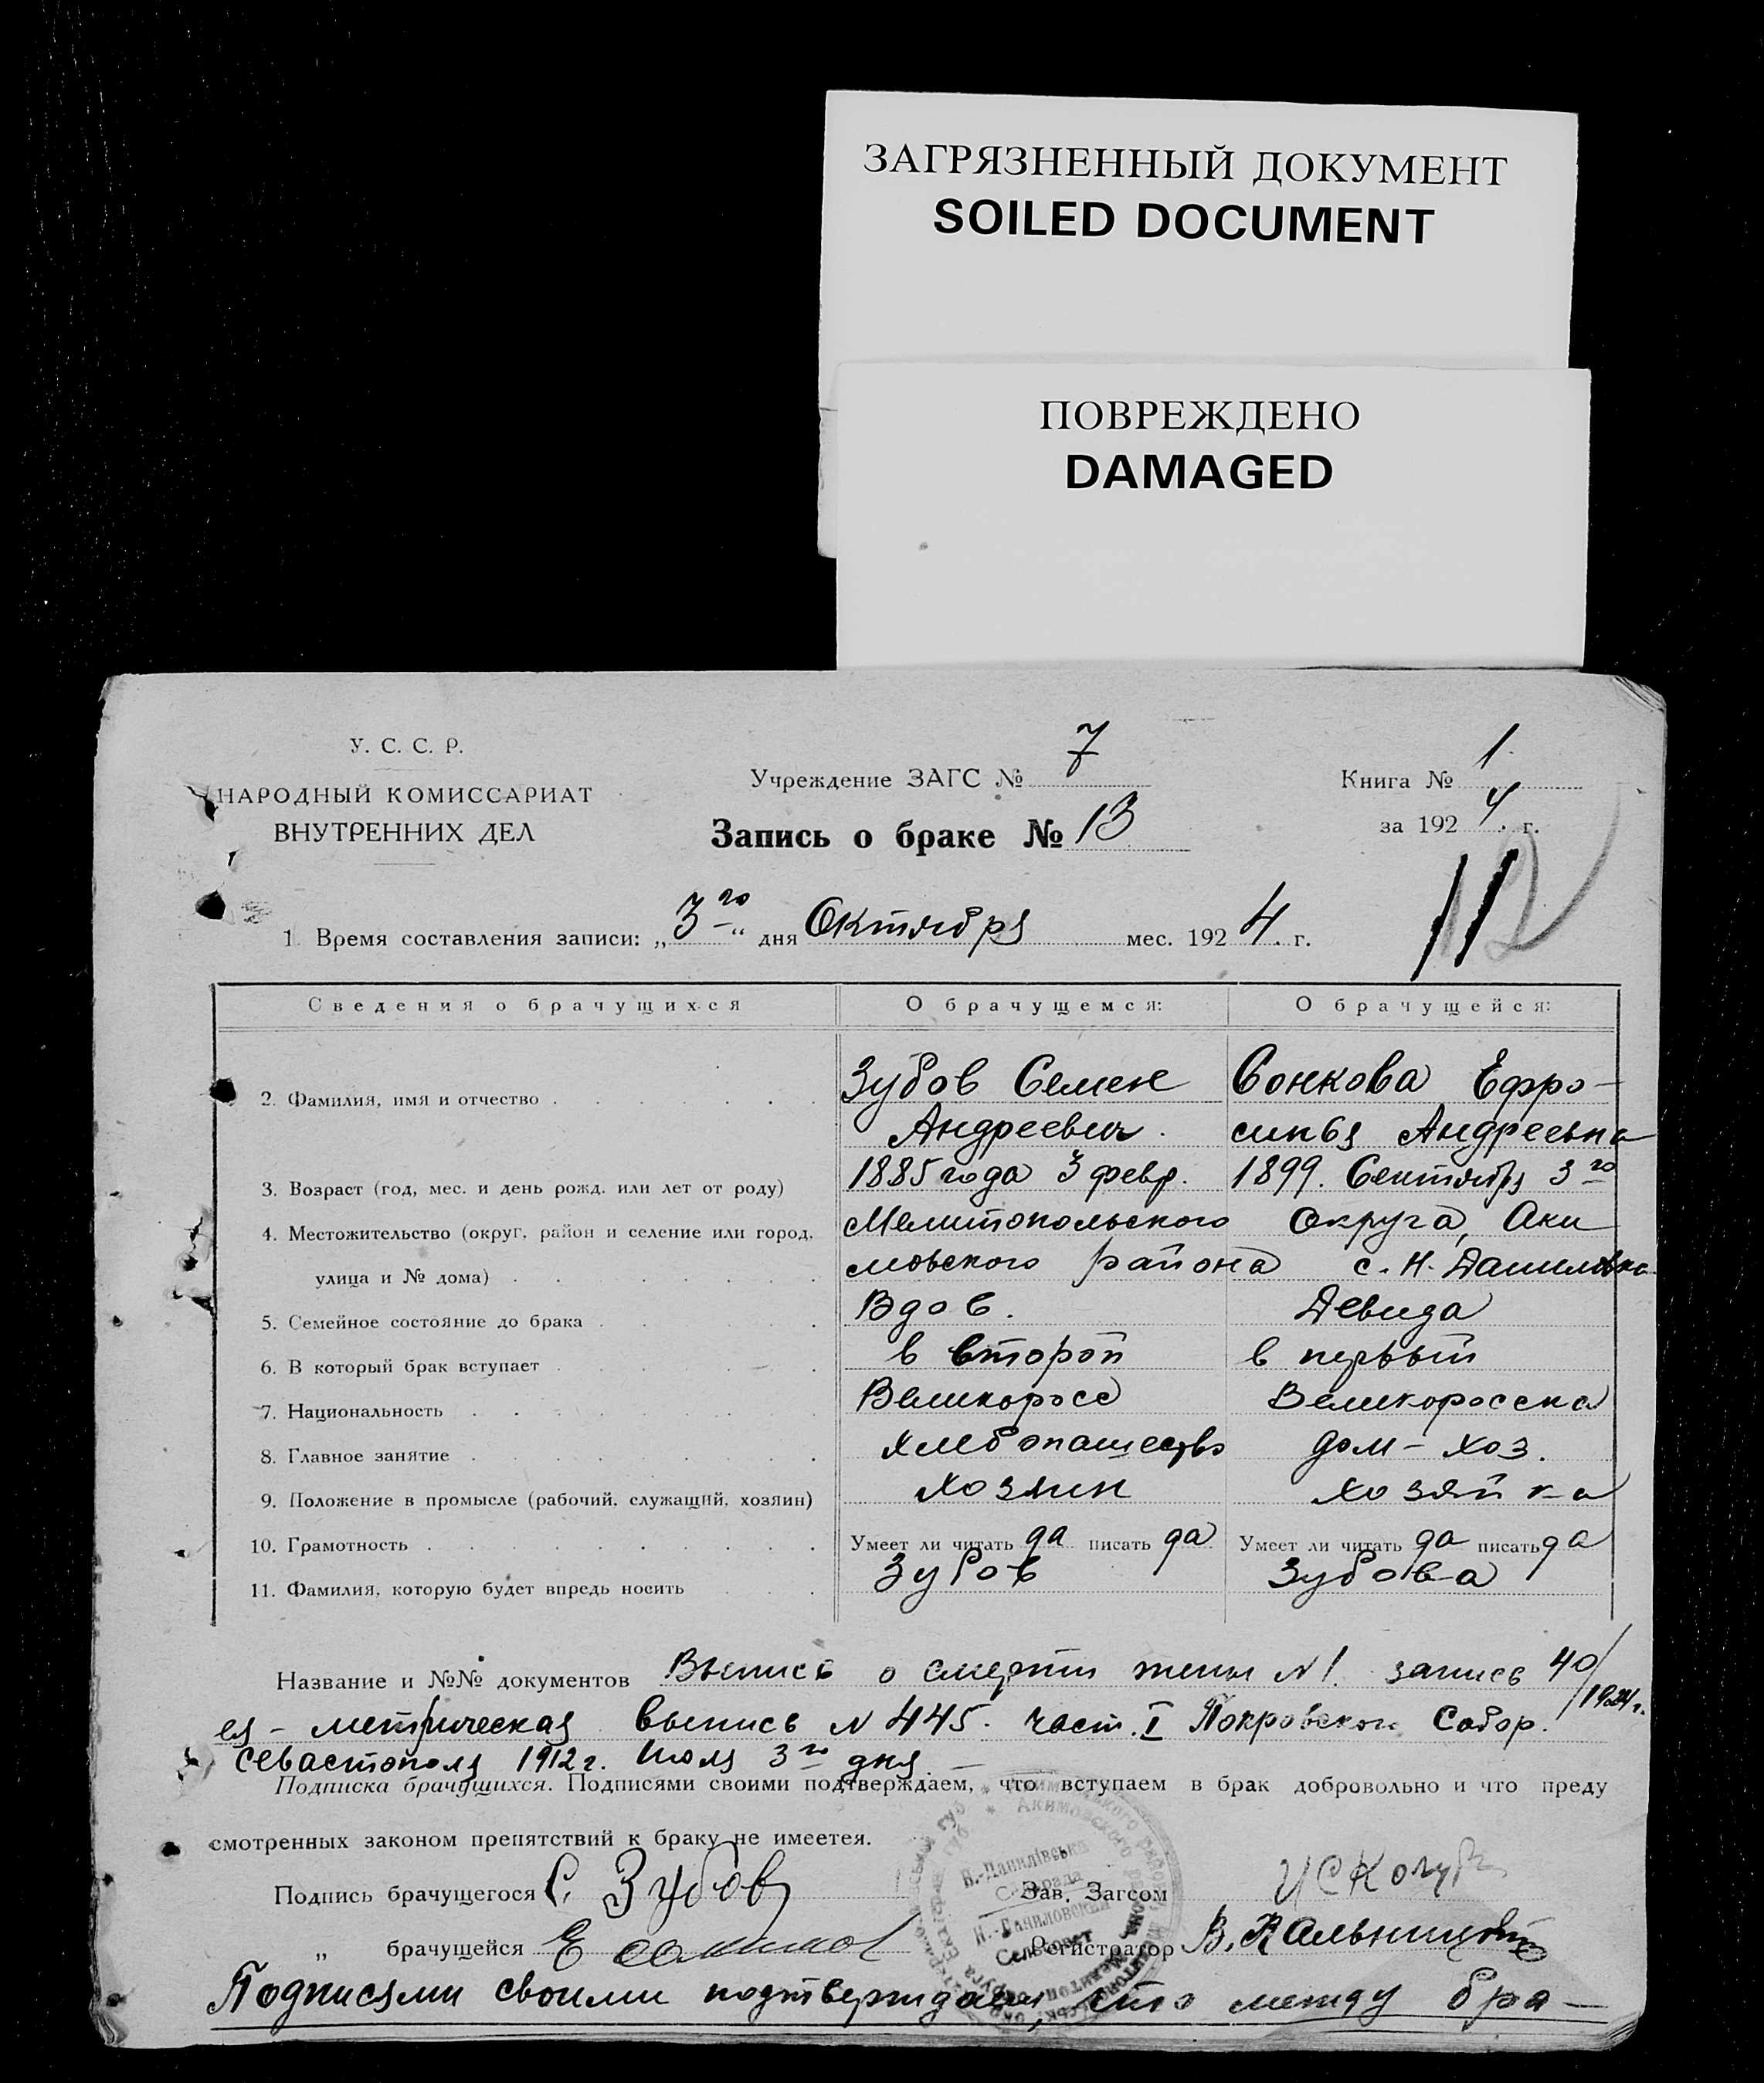 ЗАГРЯЗНЕННЫЙ ДОКУМЕНТ
SOILED DOCUMENT
ПОВРЕЖДЕНО
DAMAGED
У. С. С. Р.
НАРОДНЫЙ КОМИССАРИАТ
ВНУТРЕННИХ ДЕЛ
Учреждение ЗАГС № 7
Запись о браке № 13
Книга № 1
за 1924 г.
112
1. Время составления записи: „3го“ дня Октября мес. 1924 г.
Сведения о брачущихся О брачущемся: О брачущейся:
2. Фамилия, имя и отчество Зубов Семен Сонкова Ефро-
Андреевич синья Андреевна
3. Возраст (год, мес. и день рожд. или лет от роду) 1885 года 3 февр. 1899. Сентября 3го
4. Местожительство (округ, район и селение или город, Мелитопольского Округа, Аки
улица и № дома) мовского района с. Н. Даниловка
5. Семейное состояние до брака Вдов. Девица
6. В который брак вступает в второй в первый
7. Национальность Великоросс Великоросска
8. Главное занятие хлебопашество дом-хоз.
9. Положение в промысле (рабочий, служащий, хозяин) хозяин хозяйка
10. Грамотность Умеет ли читать да писать да Умеет ли читать да писать да
11. Фамилия, которую будет впредь носить Зубов Зубова
Название и №№ документов Выпись о смерти жены N 1. запись 40/1924 г.
ея - метрическая выпись N 445. част. I Покровского Собор.
Севастополя 1912 г. Июля 3го дня. -
Подписка брачущихся. Подписями своими подтверждаем, что вступаем в брак добровольно и что преду
смотренных законом препятствий к браку не имеетея.
Подпись брачущегося С. Зубов Зав. Загсом
„ брачущейся Е Регистратор В. Кальницкий
Н.-Данилівська
Сельрада
Н.-Даниловский
Сельсовет
Подписями своими подтверждаем, что между бра-